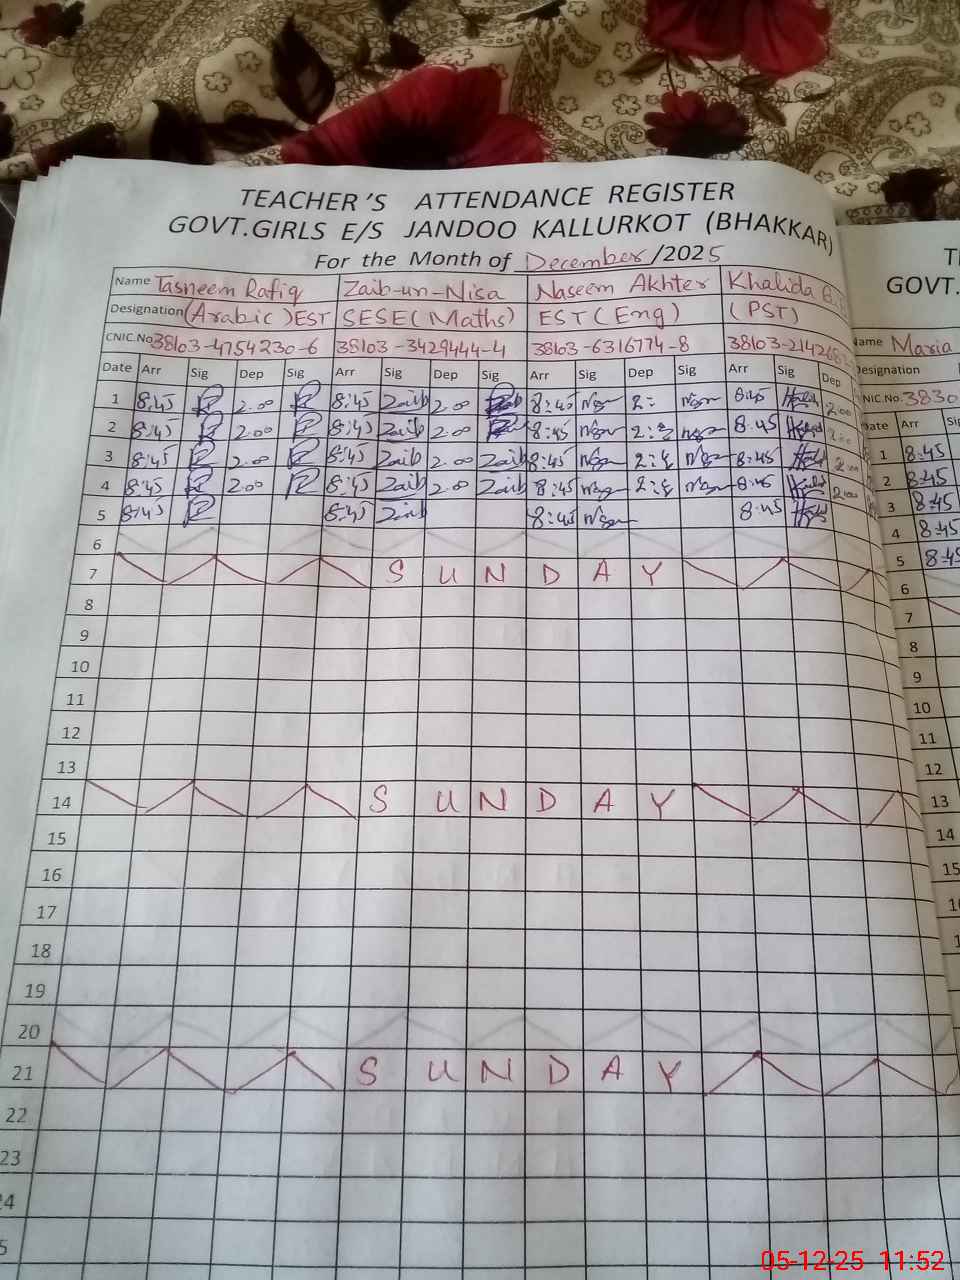 TEACHER'S ATTENDANCE REGISTER
GOVT.GIRLS E/S JANDOO KALLURKOT (BHAKKAR)
For the Month of December/2025
Name Tasneem Rafiq Zaib-un-Nisa Naseem Akhter Khalida
Designation (Arabic) EST SESE (Maths) EST (Eng) (PST)
CNIC.No 38103-4754230-6 38103-3429444-4 38103-6316774-8 38103-214268
Date Arr Sig Dep Sig Arr Sig Dep Sig Arr Sig Dep Sig Arr Sig Dep
1 8:45 2.00 8:45 Zaib 2.00 8:45 2: 8:45 2.00
2 8:45 2.00 8:45 Zaib 2.00 8:45 8:45 2.00
3 8:45 2.00 8:45 Zaib 2.00 Zaib 8:45 8:45 2.00
4 8:45 2.00 8:45 Zaib 2.00 Zaib 8:45 8:45 2.00
5 8:45 8:45 Zaib 8:45 8:45
6
7 SUNDAY
8
9
10
11
12
13
14 SUNDAY
15
16
17
18
19
20
21 SUNDAY
22
23
24
5
GOVT.
Name Maria
Designation
CNIC.No 3830
Date Arr Sig
1 8:45
2 8:45
3 8:45
4 8:45
5 8:45
6
7
8
9
10
11
12
13
14
15
05-12-25 11:52